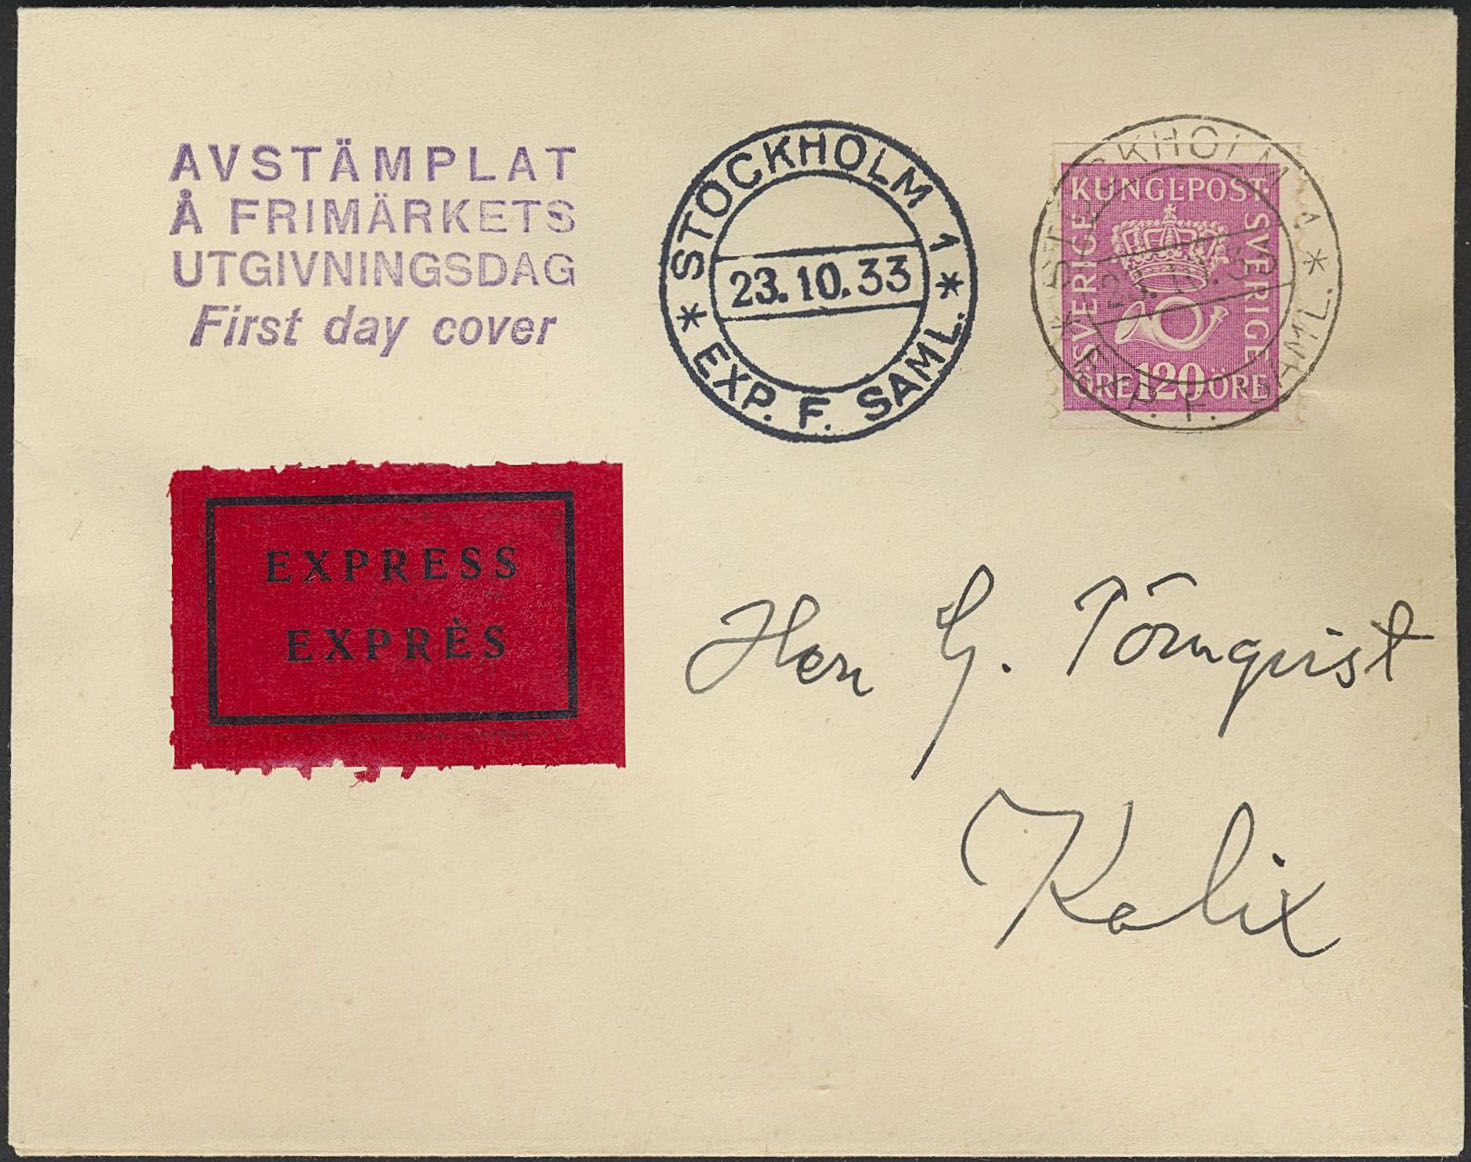 AVSTÄMPLAT
Å FRIMÄRKETS
UTGIVNINGSDAG
First day cover
STOCKHOLM 1
23.10.33
* EXP. F. SAML. *
STOCKHOLM 1
23.10.33
* EXP. F. SAML. *
KUNGL·POST
SVERIGE
SVERIGE
ÖRE 120 ÖRE
EXPRESS
EXPRÈS
Herr G. Törnqvist
Kalix